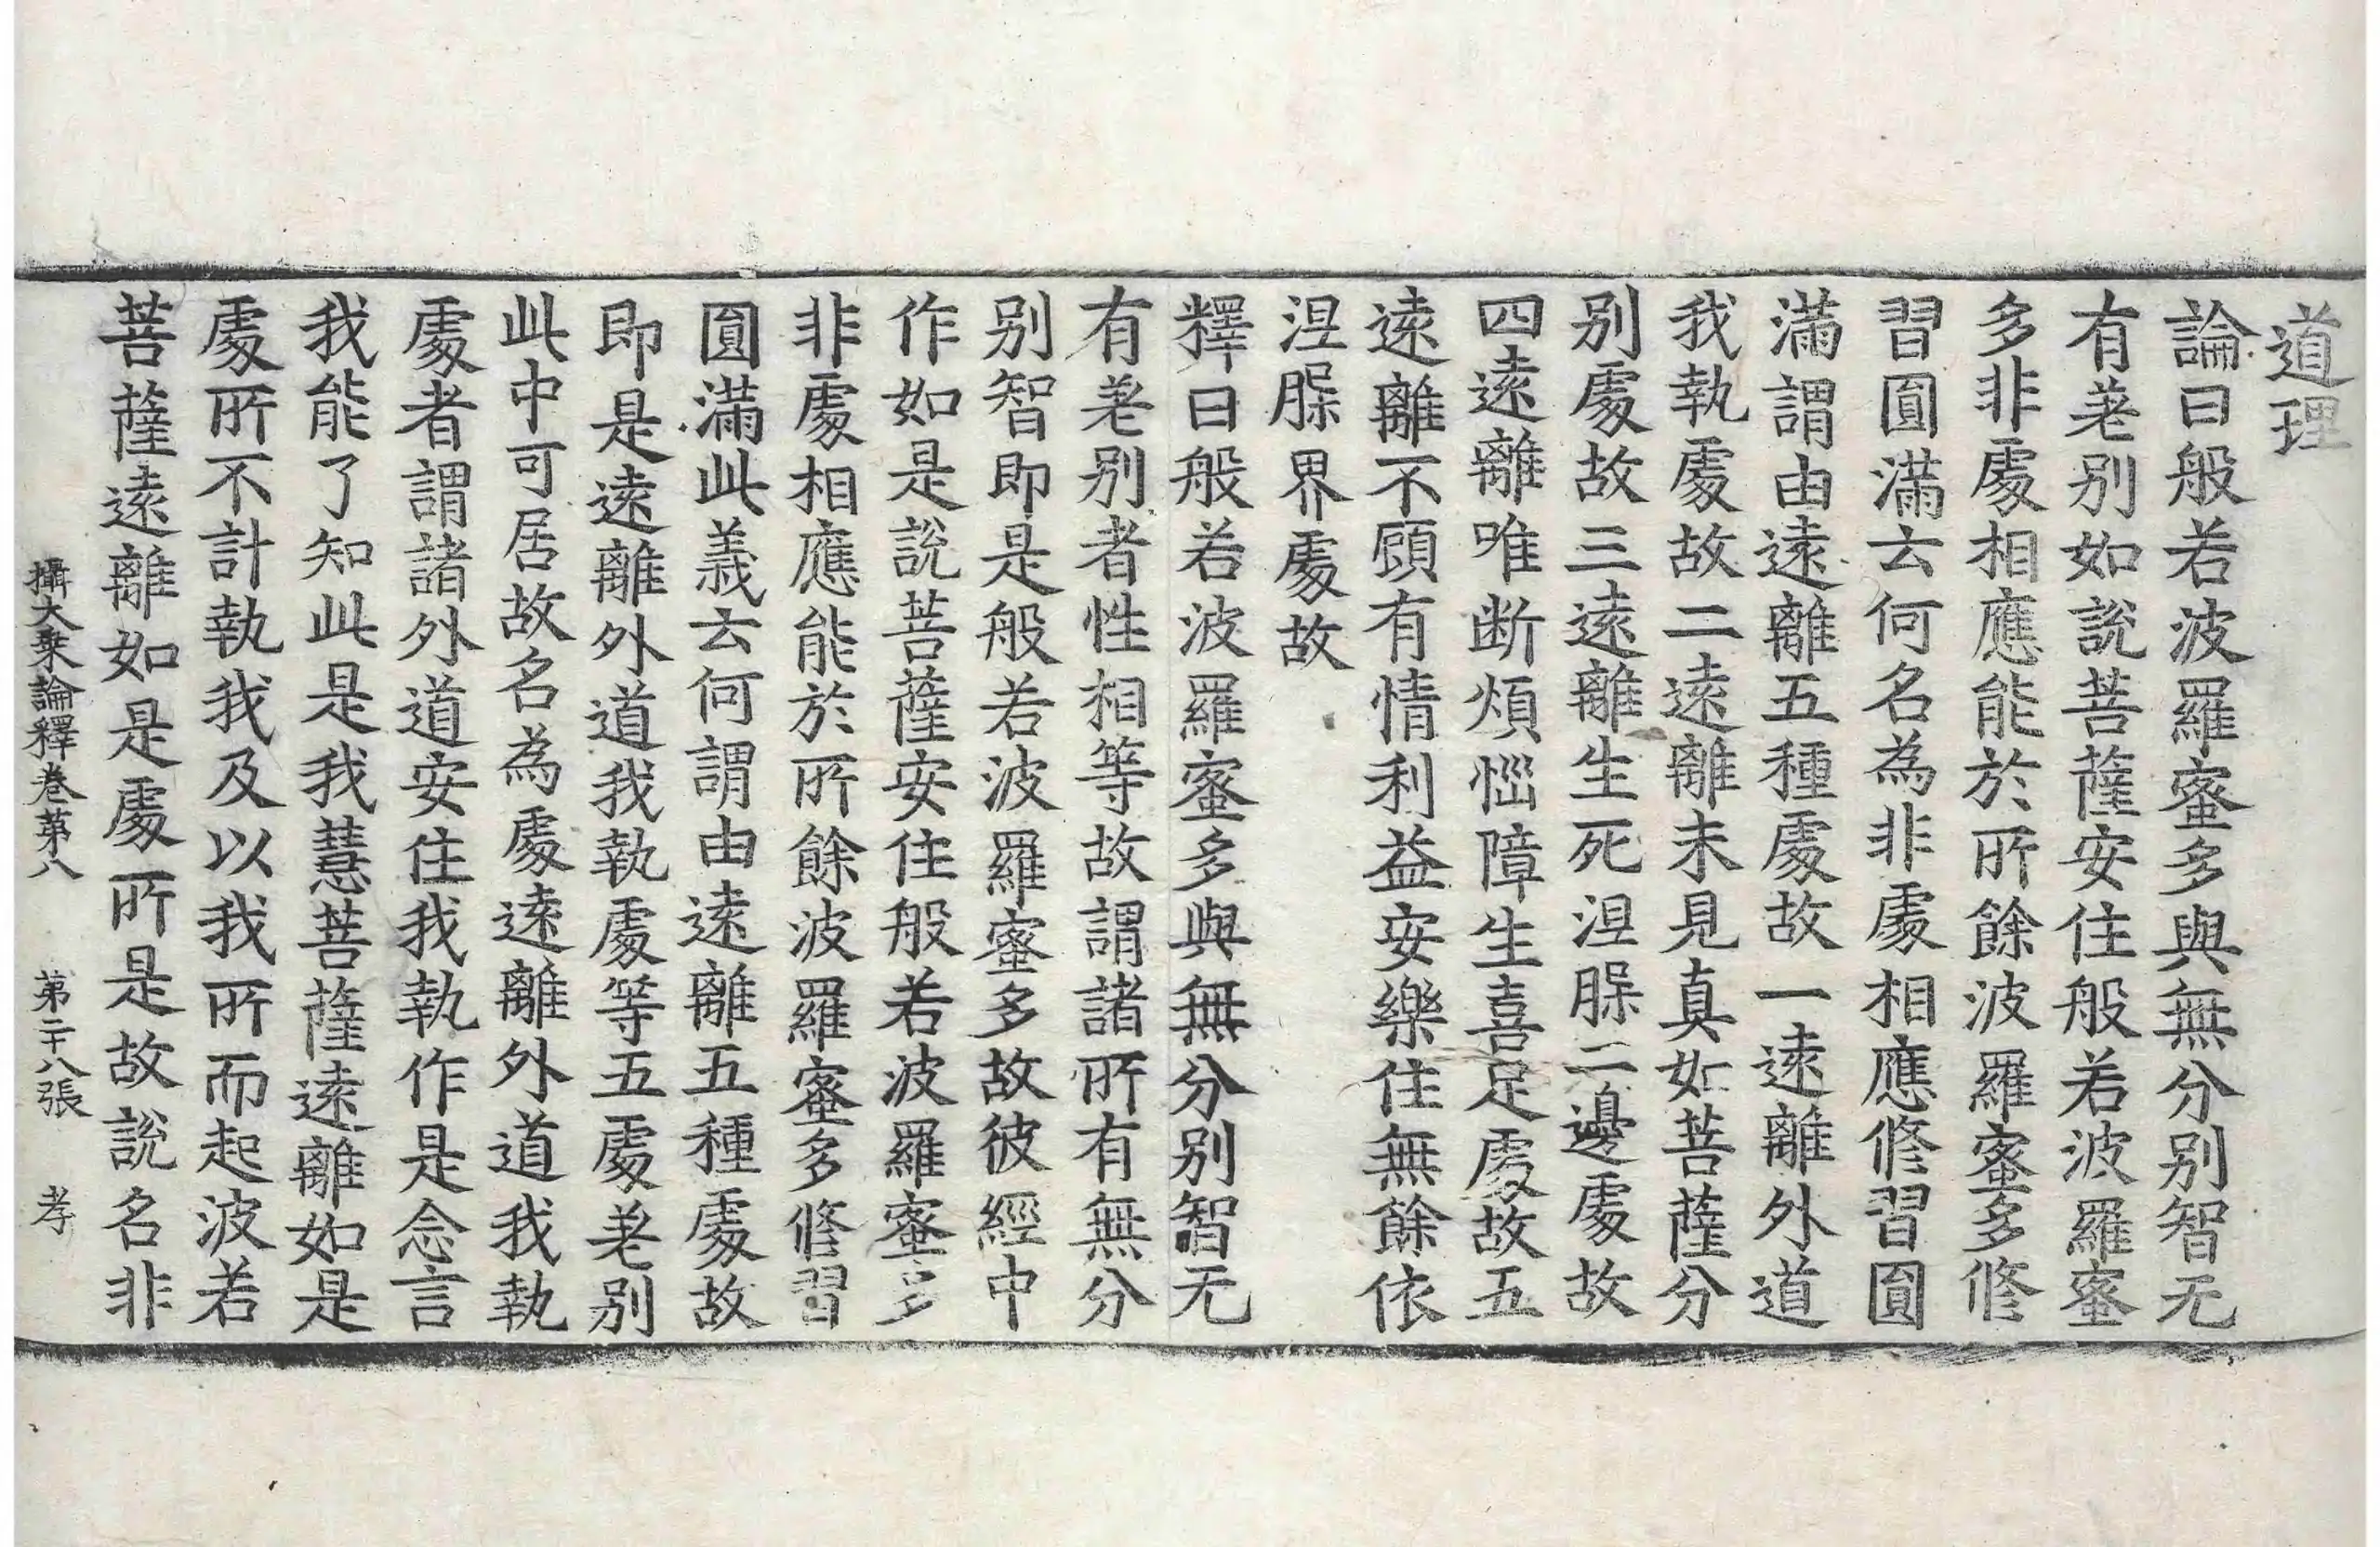 道理
論曰般若波羅蜜多與無分別智无
有差別如說菩薩安住般若波羅蜜
多非處相應能於所餘波羅蜜多修
習圓滿云何名為非處相應修習圓
滿謂由遠離五種處故一遠離外道
我執處故二遠離未見真如菩薩分
別處故三遠離生死涅槃二邊處故
四遠離唯断煩惱障生喜足處故五
遠離不顧有情利益安樂住無餘依
涅槃界處故
釋曰般若波羅蜜多與無分別智无
有差別者性相等故謂諸所有無分
別智即是般若波羅蜜多故彼經中
作如是說菩薩安住般若波羅蜜多
非處相應能於所餘波羅蜜多修習
圓滿此義云何謂由遠離五種處故
即是遠離外道我執處等五處差別
此中可居故名為處遠離外道我執
處者謂諸外道安住我執作是念言
我能了知此是我慧菩薩遠離如是
處所不計執我及以我所而起波若
菩薩遠離如是處所是故說名非
攝大乗論釋卷第八　第二十八張　孝